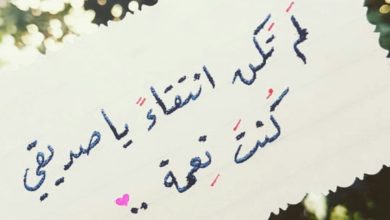 لَمَ تَكن انتقاءً يا صديقي
كُنتَ نِعمة ..